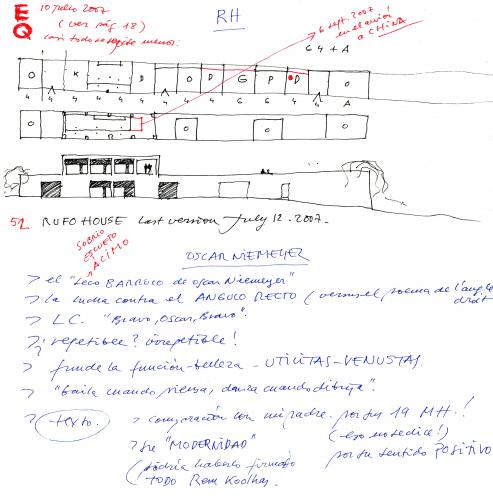 EQ
10 julio 2007
(ver pág 18)
casi todo se repite menos:
RH
6 sept. 2007
en el avión!
a CHINA
64 + A
O K D O D G P D O
4 4 4 4 4 4 4 4 4 4 4 4 4 A
O O O O
52 RUFO HOUSE Last version July 12. 2007.
SOBRIO
ESCUETO
ACIMO
OSCAR NIEMEYER
> el "Seco BARROCO de Oscar Niemeyer"
> la lucha contra el ANGULO RECTO (versus el poema de l'angle
droit
> L.C. "Bravo, Oscar, Bravo".
> ¿¡ repetible? irrepetible!
> funde la función-belleza - UTILITAS-VENUSTAS.
> "baila cuando piensa, danza cuando dibuja".
> (texto.) > comparación con mi padre. por sus 19 MH.!
(eso no se dice!)
> su "MODERNIDAD" por su sentido POSITIVO
(podría haberlo firmado
TODO Rem Koolhas.